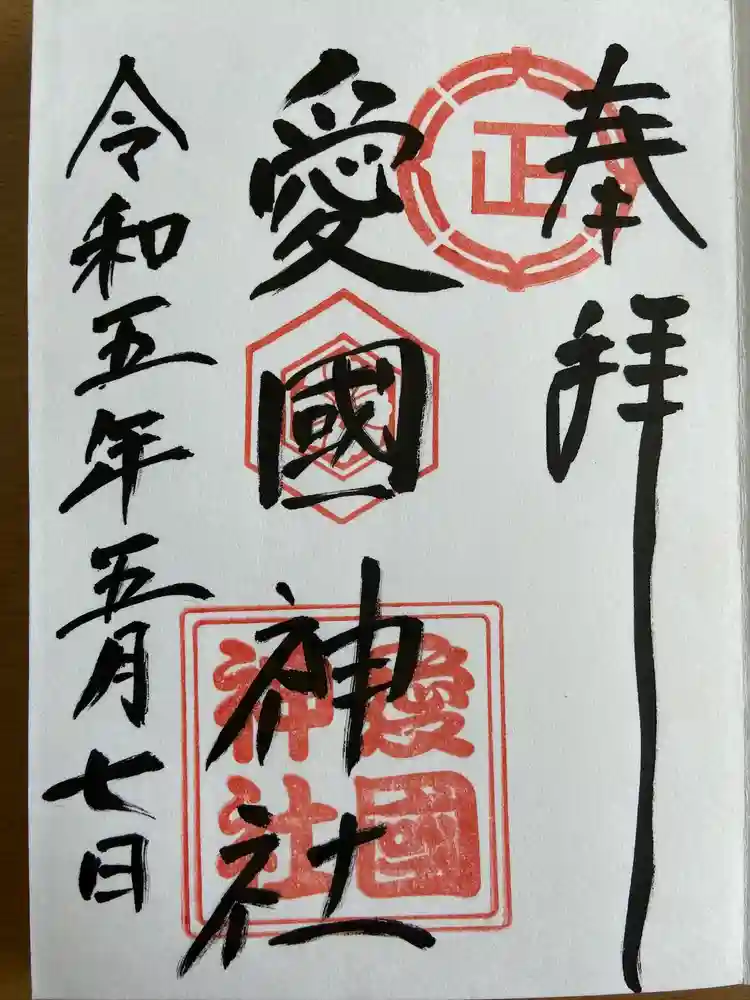 奉拝
正
愛國神社
愛國
神社
令和五年五月七日